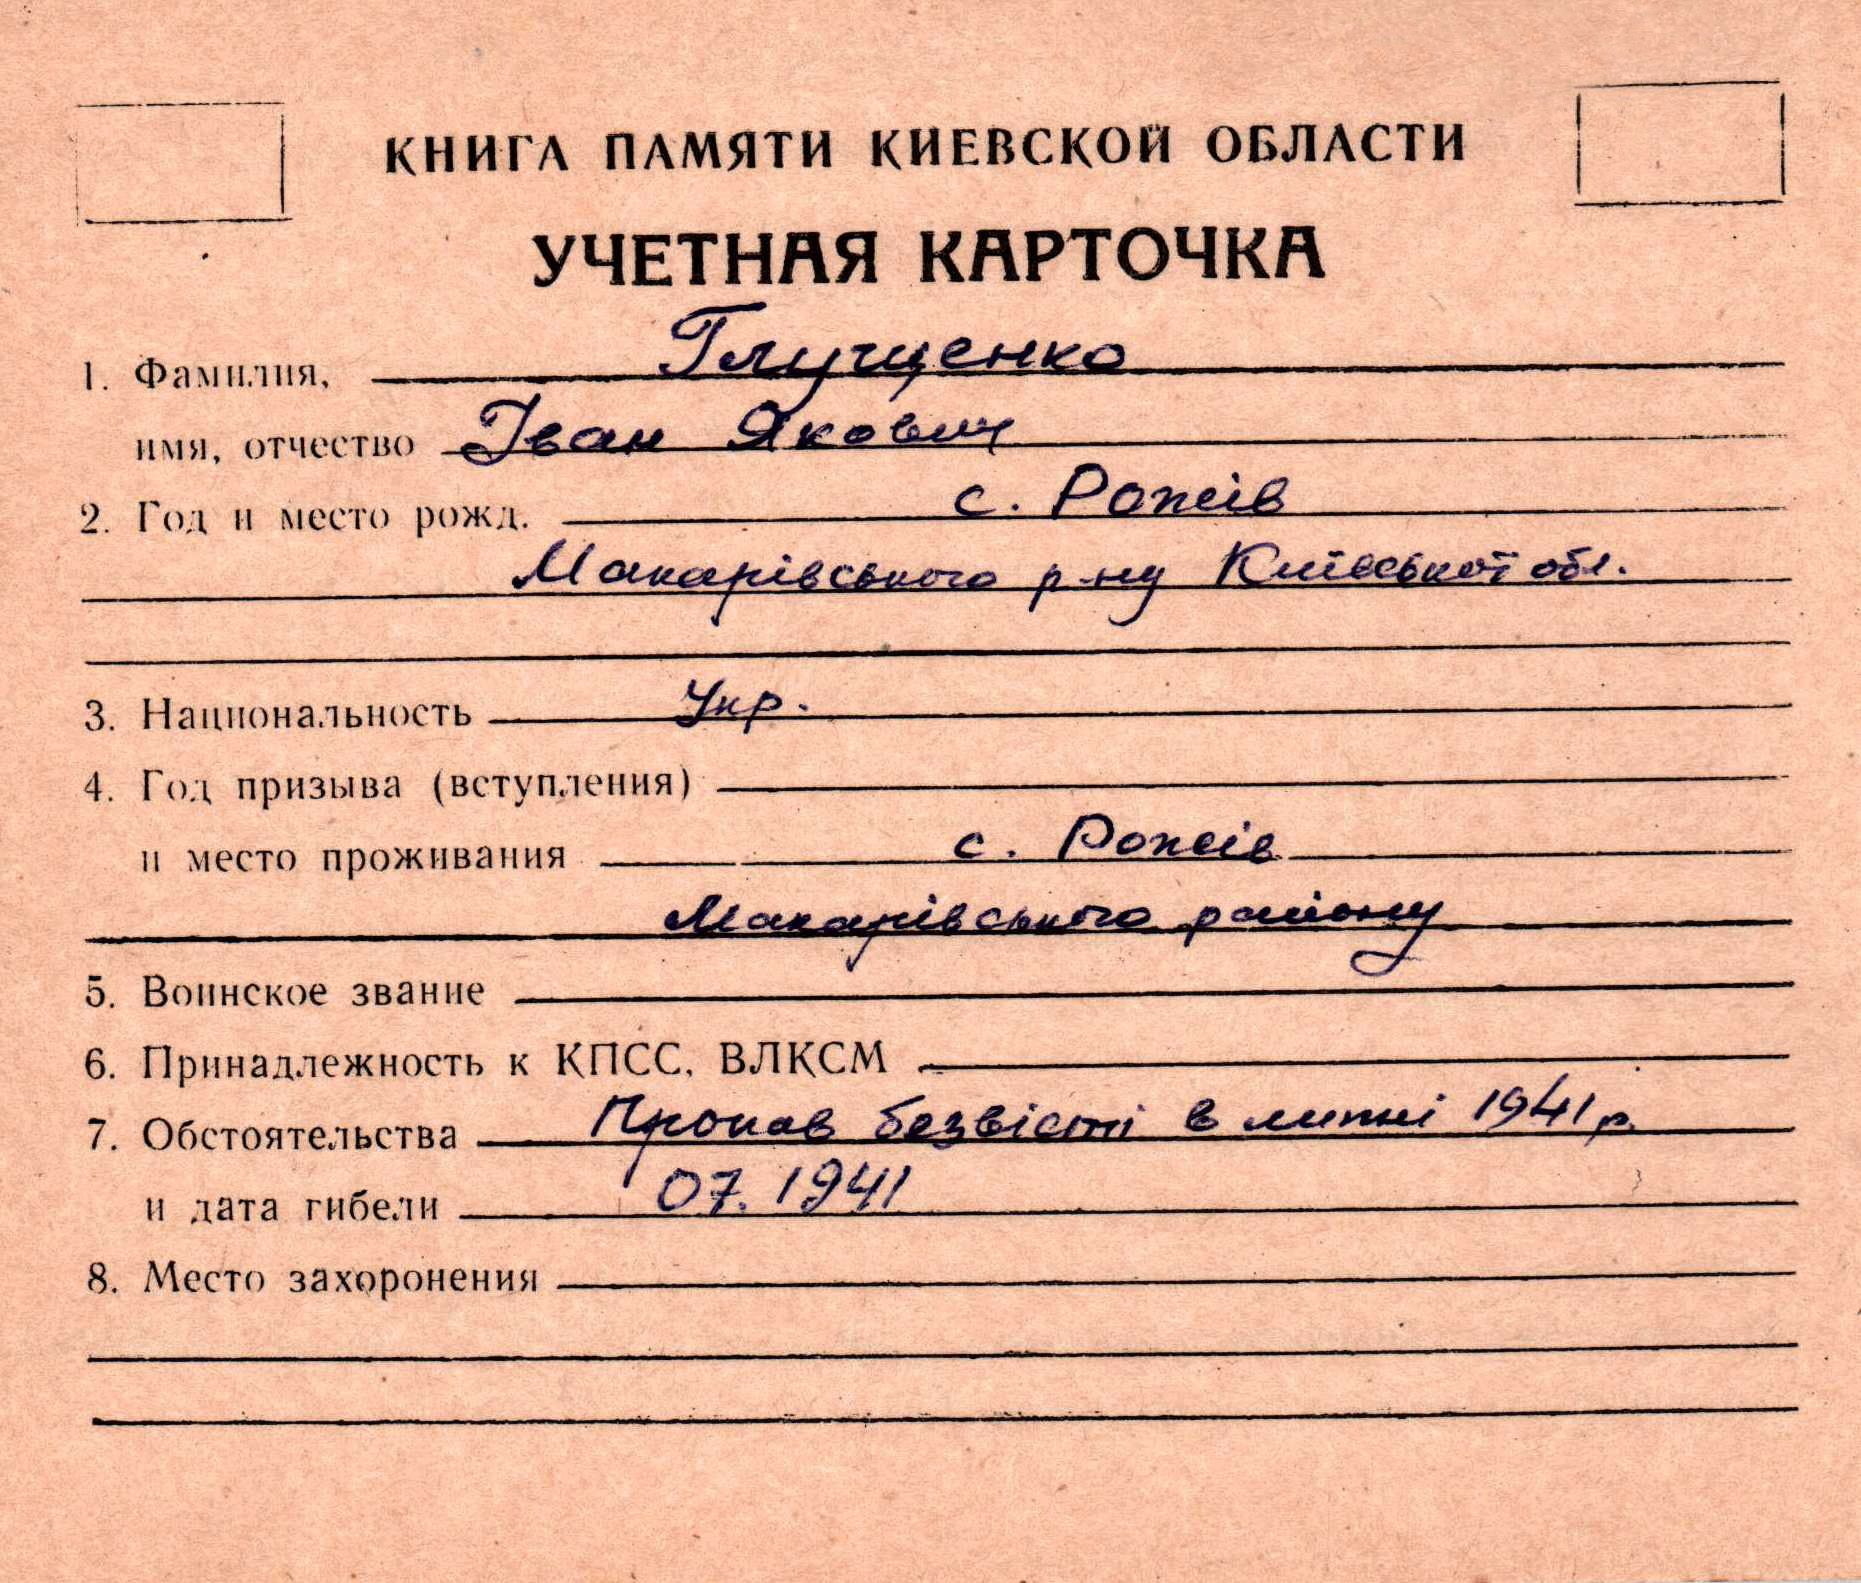 КНИГА ПАМЯТИ КИЕВСКОЙ ОБЛАСТИ
УЧЕТНАЯ КАРТОЧКА
1. Фамилия, Глущенко
имя, отчество Іван Якович
2. Год и место рожд. с. Рожів
Макарівського р-ну Київської обл.
3. Национальность Укр.
4. Год призыва (вступления)
и место проживания с. Рожів
Макарівського району
5. Воинское звание
6. Принадлежность к КПСС, ВЛКСМ
7. Обстоятельства Пропав безвісті в липні 1941 р.
и дата гибели 07.1941
8. Место захоронения